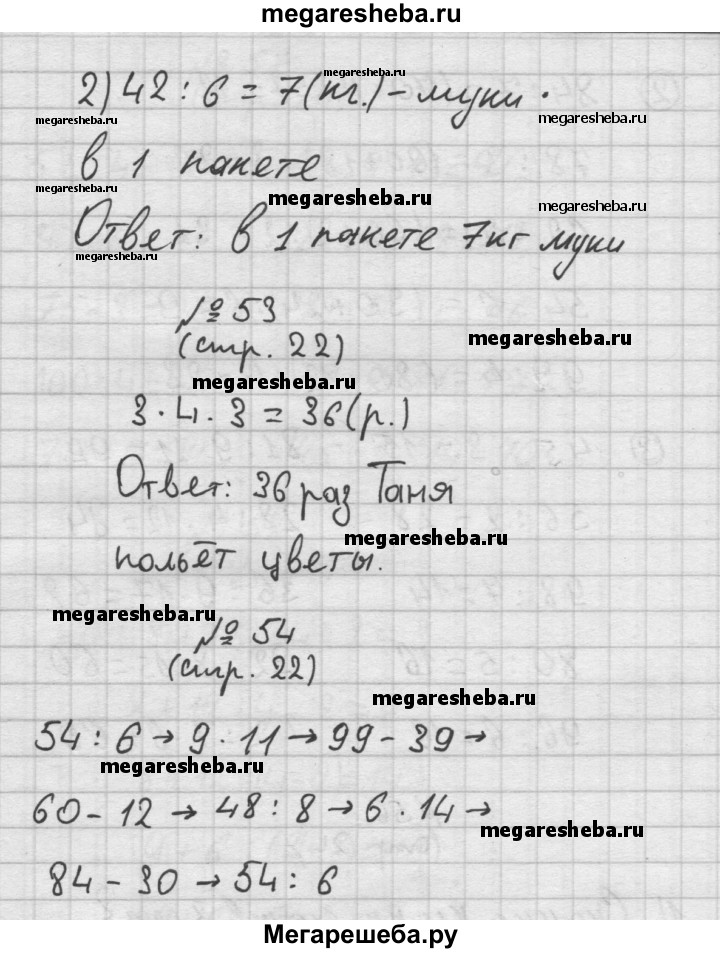 megaresheba.ru
2) 42 : 6 = 7 (кг.) - муки
megaresheba.ru
megaresheba.ru
megaresheba.ru
в 1 пакете
megaresheba.ru
megaresheba.ru
megaresheba.ru
Ответ: в 1 пакете 7кг муки
megaresheba.ru
№ 53
megaresheba.ru
(стр. 22)
megaresheba.ru
3 · 4 · 3 = 36 (р.)
Ответ: 36 раз Таня
megaresheba.ru
польёт цветы.
megaresheba.ru
№ 54
(стр. 22)
megaresheba.ru
54 : 6 → 9 · 11 → 99 - 39 →
megaresheba.ru
60 - 12 → 48 : 8 → 6 · 14 →
megaresheba.ru
84 - 30 → 54 : 6
Мегарешеба.ру